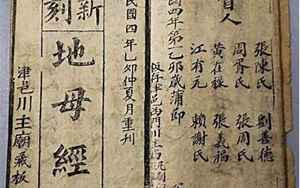 首人
張陳氏 劉善德
周胥氏 張周氏
黃在 張義福
江有元 賴謝氏
國四年第乙卯歲蒲即
邑西門川主
民國四年乙卯仲夏月重刊
新刻
地母經
津邑川主廟藏板